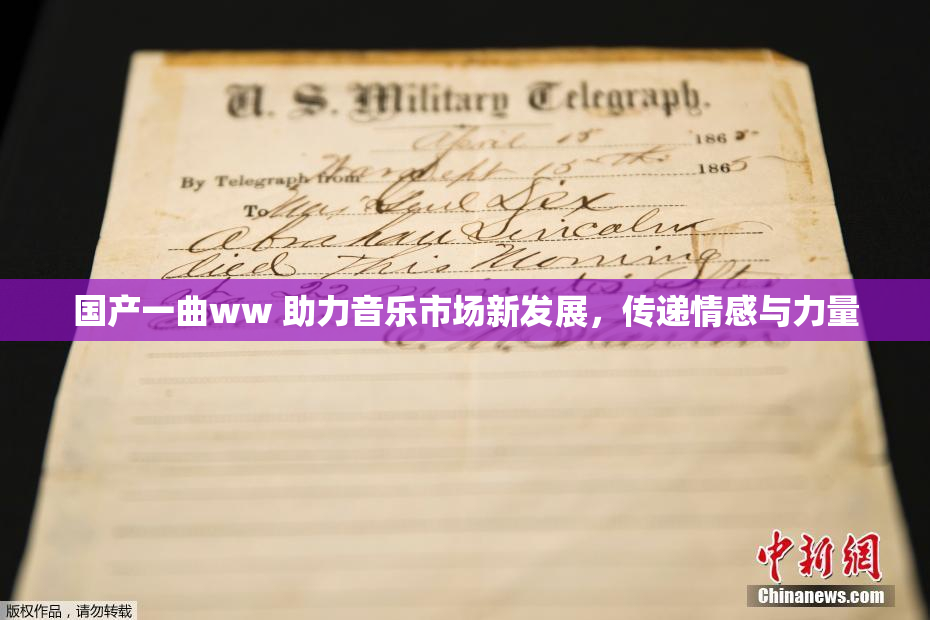 U. S. Military Telegraph.
April 15 1865
By Telegraph from War Dept 15th 1865
To Maj Genl Dix
Abraham Lincoln
died This Morning
22 minutes after
国产一曲ww 助力音乐市场新发展，传递情感与力量
E. M. Stanton
中新网
Chinanews.com
版权作品，请勿转载